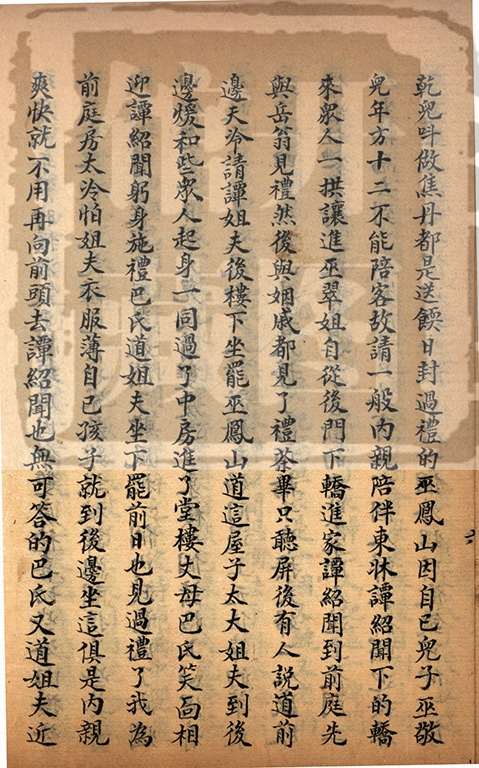 乾兒呌做焦丹都是送餪日封過禮的巫鳳山因自己兒子巫敬
兒年方十二不能陪客故請一般內親陪伴東牀譚紹聞下的轎
來衆人一拱讓進巫翠姐自從後門下轎進家譚紹聞到前庭先
與岳翁見禮然後與姻戚都見了禮茶畢只聽屏後有人說道前
邊天冷請譚姐夫後樓下坐罷巫鳳山道這屋子太大姐夫到後
邊煖和些衆人起身一同過了中房進了堂樓丈母巴氏笑面相
迎譚紹聞躬身施禮巴氏道姐夫坐下罷前日也見過禮了我為
前庭房太冷怕姐夫衣服薄自已孩子就到後邊坐這俱是內親
爽快就不用再向前頭去譚紹聞也無可答的巴氏又道姐夫近